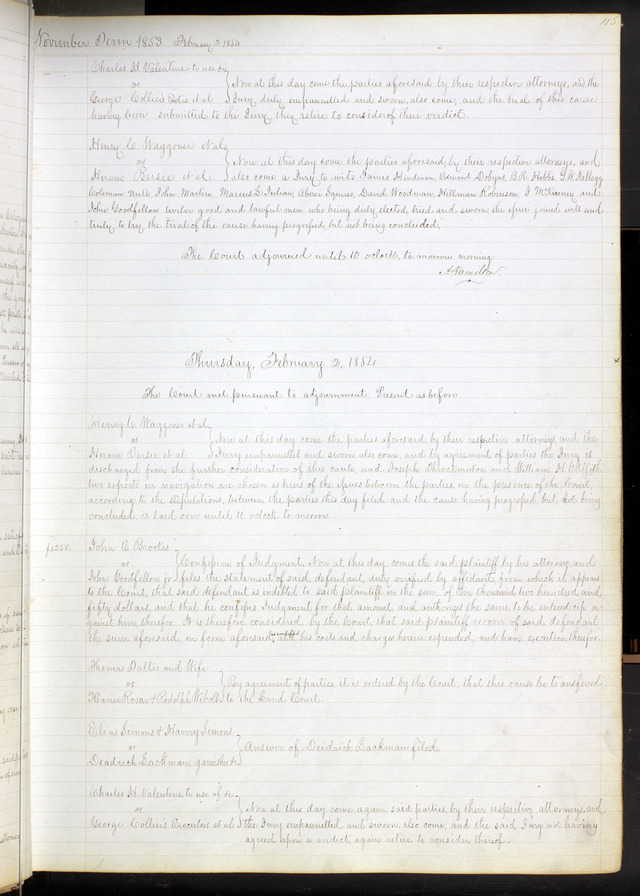 115
November Term 1853. February 2 1854
Charles H. Valentine to use &c
vs
Now at this day come the parties aforesaid by their respective attorneys, and the
George Collier's Exors et al
Jury duly empannelled and sworn, also come, and the trial of this cause
having been submitted to the Jury they retire to consider of their verdict.
Henry C Waggoner et al
vs
Now at this day come the parties aforesaid, by their respective attorneys, and
Hiram Bersee et al
also come a Jury to wit: James Hindman, Edward Dobyns, B.R. Hobbs, G.W. Kellogg
Coleman Mills, John Martin, Marcus L. Julian, Abner Squires, David Woodman, Hillman Robinson, J McKinney and
John Goodfellow twelve good and lawful men who being duly elected, tried and sworn the issue joined well and
truly to try the trial of the cause having progressed, but not being concluded,
The Court adjourned until 10 oclock, to morrow morning.
A Hamilton
Thursday, February 2, 1854
The Court met pursuant to adjournment. Present as before.
Henry C Waggoner et al
vs
Now at this day come the parties aforesaid, by their respective attorneys, and the
Hiram Bersee et al
Jury empannelled and sworn also come, and by agreement of parties the Jury is
discharged from the further consideration of this cause, and Joseph Throckmorton and William H.
two experts in navigation are chosen as triers of the issues between the parties, in the presence of the Court,
according to the stipulations, between the parties this day filed and the cause having progressed but not being
concluded, is laid over until 10 oclock to morrow.
$1250
John E Brookes
vs
Confession of Judgment. Now at this day, comes the said plaintiff by his attorney, and
John Goodfellow jr
files the statement of said defendant, duly verified by affidavit, from which it appears
to the Court, that said defendant is indebted to said plaintiff in the sum, of one thousand two hundred and
fifty dollars, and that he confesses Judgment for that amount, and authorizes the same to be entered up a
gainst him, therefor. It is therefore considered by the Court, that said plaintiff recover of said defendant
the sum aforesaid, in form aforesaid, and his costs and charges herein expended, and have execution therefor.
Thomas Dallis and Wife
vs
By agreement of parties, it is ordered by the Court, that this cause be transferred
Xavier Rosar & Rodolph
to the Land Court.
Elias Simons & Harvey Simons
vs
Answer of Deidrich Lackman filed
Deadrich Lackman garnishee
Charles H. Valentine to use of &c
vs
Now at this day, come again said parties, by their respective attorneys, and
George Collier's Executors et al
the Jury empannelled and sworn also come, and the said Jury not having
agreed upon a verdict, again retire to consider thereof.